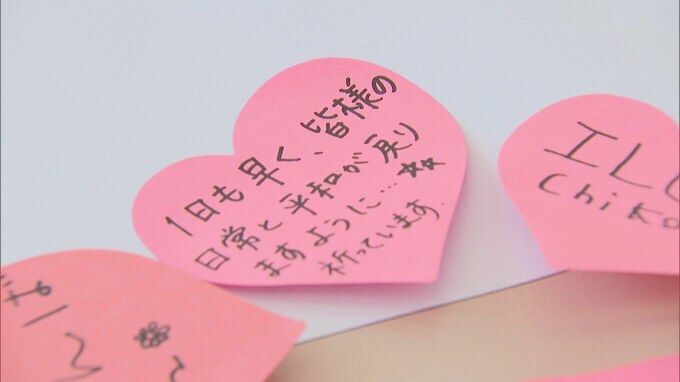 1日も早く、皆様の
日常と平和が戻り
ますように…☆☆
祈っています.
ILO
Chiko